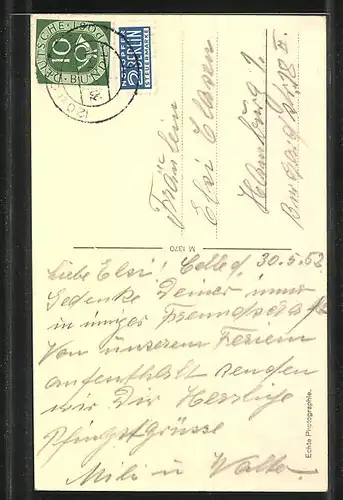 DEUTSCHE BUNDESPOST
10
NOTOPFER
2 BERLIN
STEUERMARKE
Fräulein
Elsi Classen
Hamburg 1.
M 1370
Liebe Elsi! Celle d. 30.5.52
Gedenke Deiner immer
in inniger Freundschaft
Von unserem Ferien
aufenthalt senden
wir Dir Herzliche
Pfingstgrüsse
Mili u
Echte Photographie.